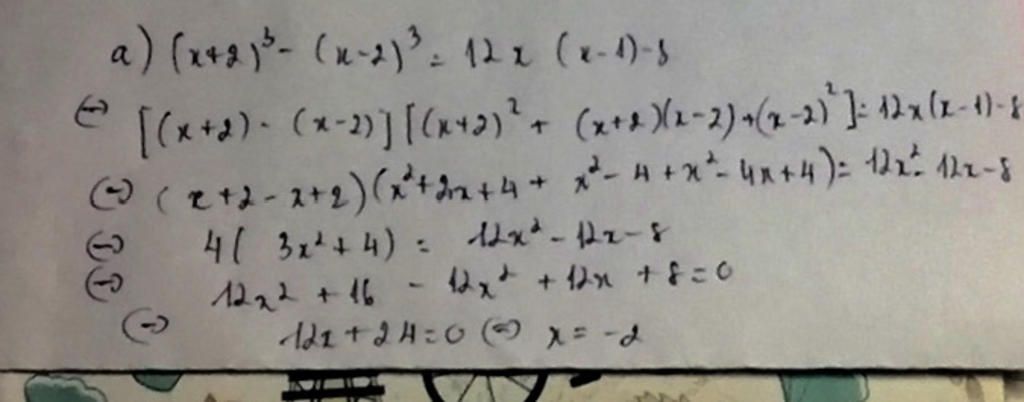 a) (x+2)³ - (x-2)³ = 12x (x-1)-8
⇔ [(x+2) - (x-2)][(x+2)² + (x+2)(x-2)+(x-2)²]= 12x(x-1)-8
⇔ (x+2-x+2)(x²+2x+4+ x²-4+x²-4x+4)= 12x²- 12x-8
⇔ 4( 3x²+4) = 12x²-12x-8
⇔ 12x² + 16 - 12x² + 12x +8=0
⇔ 12x+24=0 ⇔ x=-2